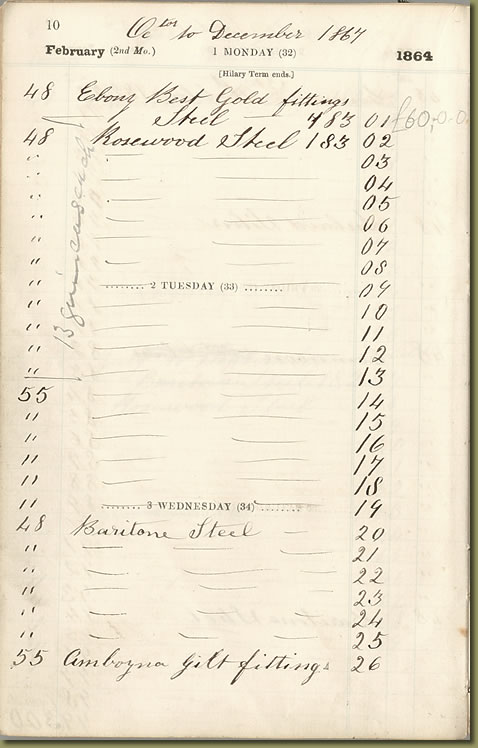 10
Oc tor to December 1867
February (2nd Mo.) 1 MONDAY (32) 1864
[Hilary Term ends.]
48 Ebony Best Gold fittings
Steel — 183 01 £60,0-0.
48 Rosewood Steel 183 02
" — — 03
" — — 04
" — — 05
" — — 06
" — — 07
" — — 08
" 2 TUESDAY (33) 09
" — — 10
" — — 11
" — — 12
" — — 13
13 guineas each
55 — — 14
" — — 15
" — — 16
" — — 17
" — — 18
" 3 WEDNESDAY (34) 19
48 Baritone Steel — 20
" — — — 21
" — — — 22
" — — — 23
" — — — 24
" — — — 25
55 Amboyna Gilt fittings 26